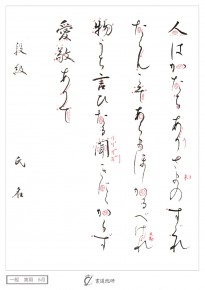 人はかたちありさまのすぐれ
たらんこそあらまほしかるべけれ
物うち言ひたる聞きにくからず
愛敬ありて
段級 氏名
一般 6月